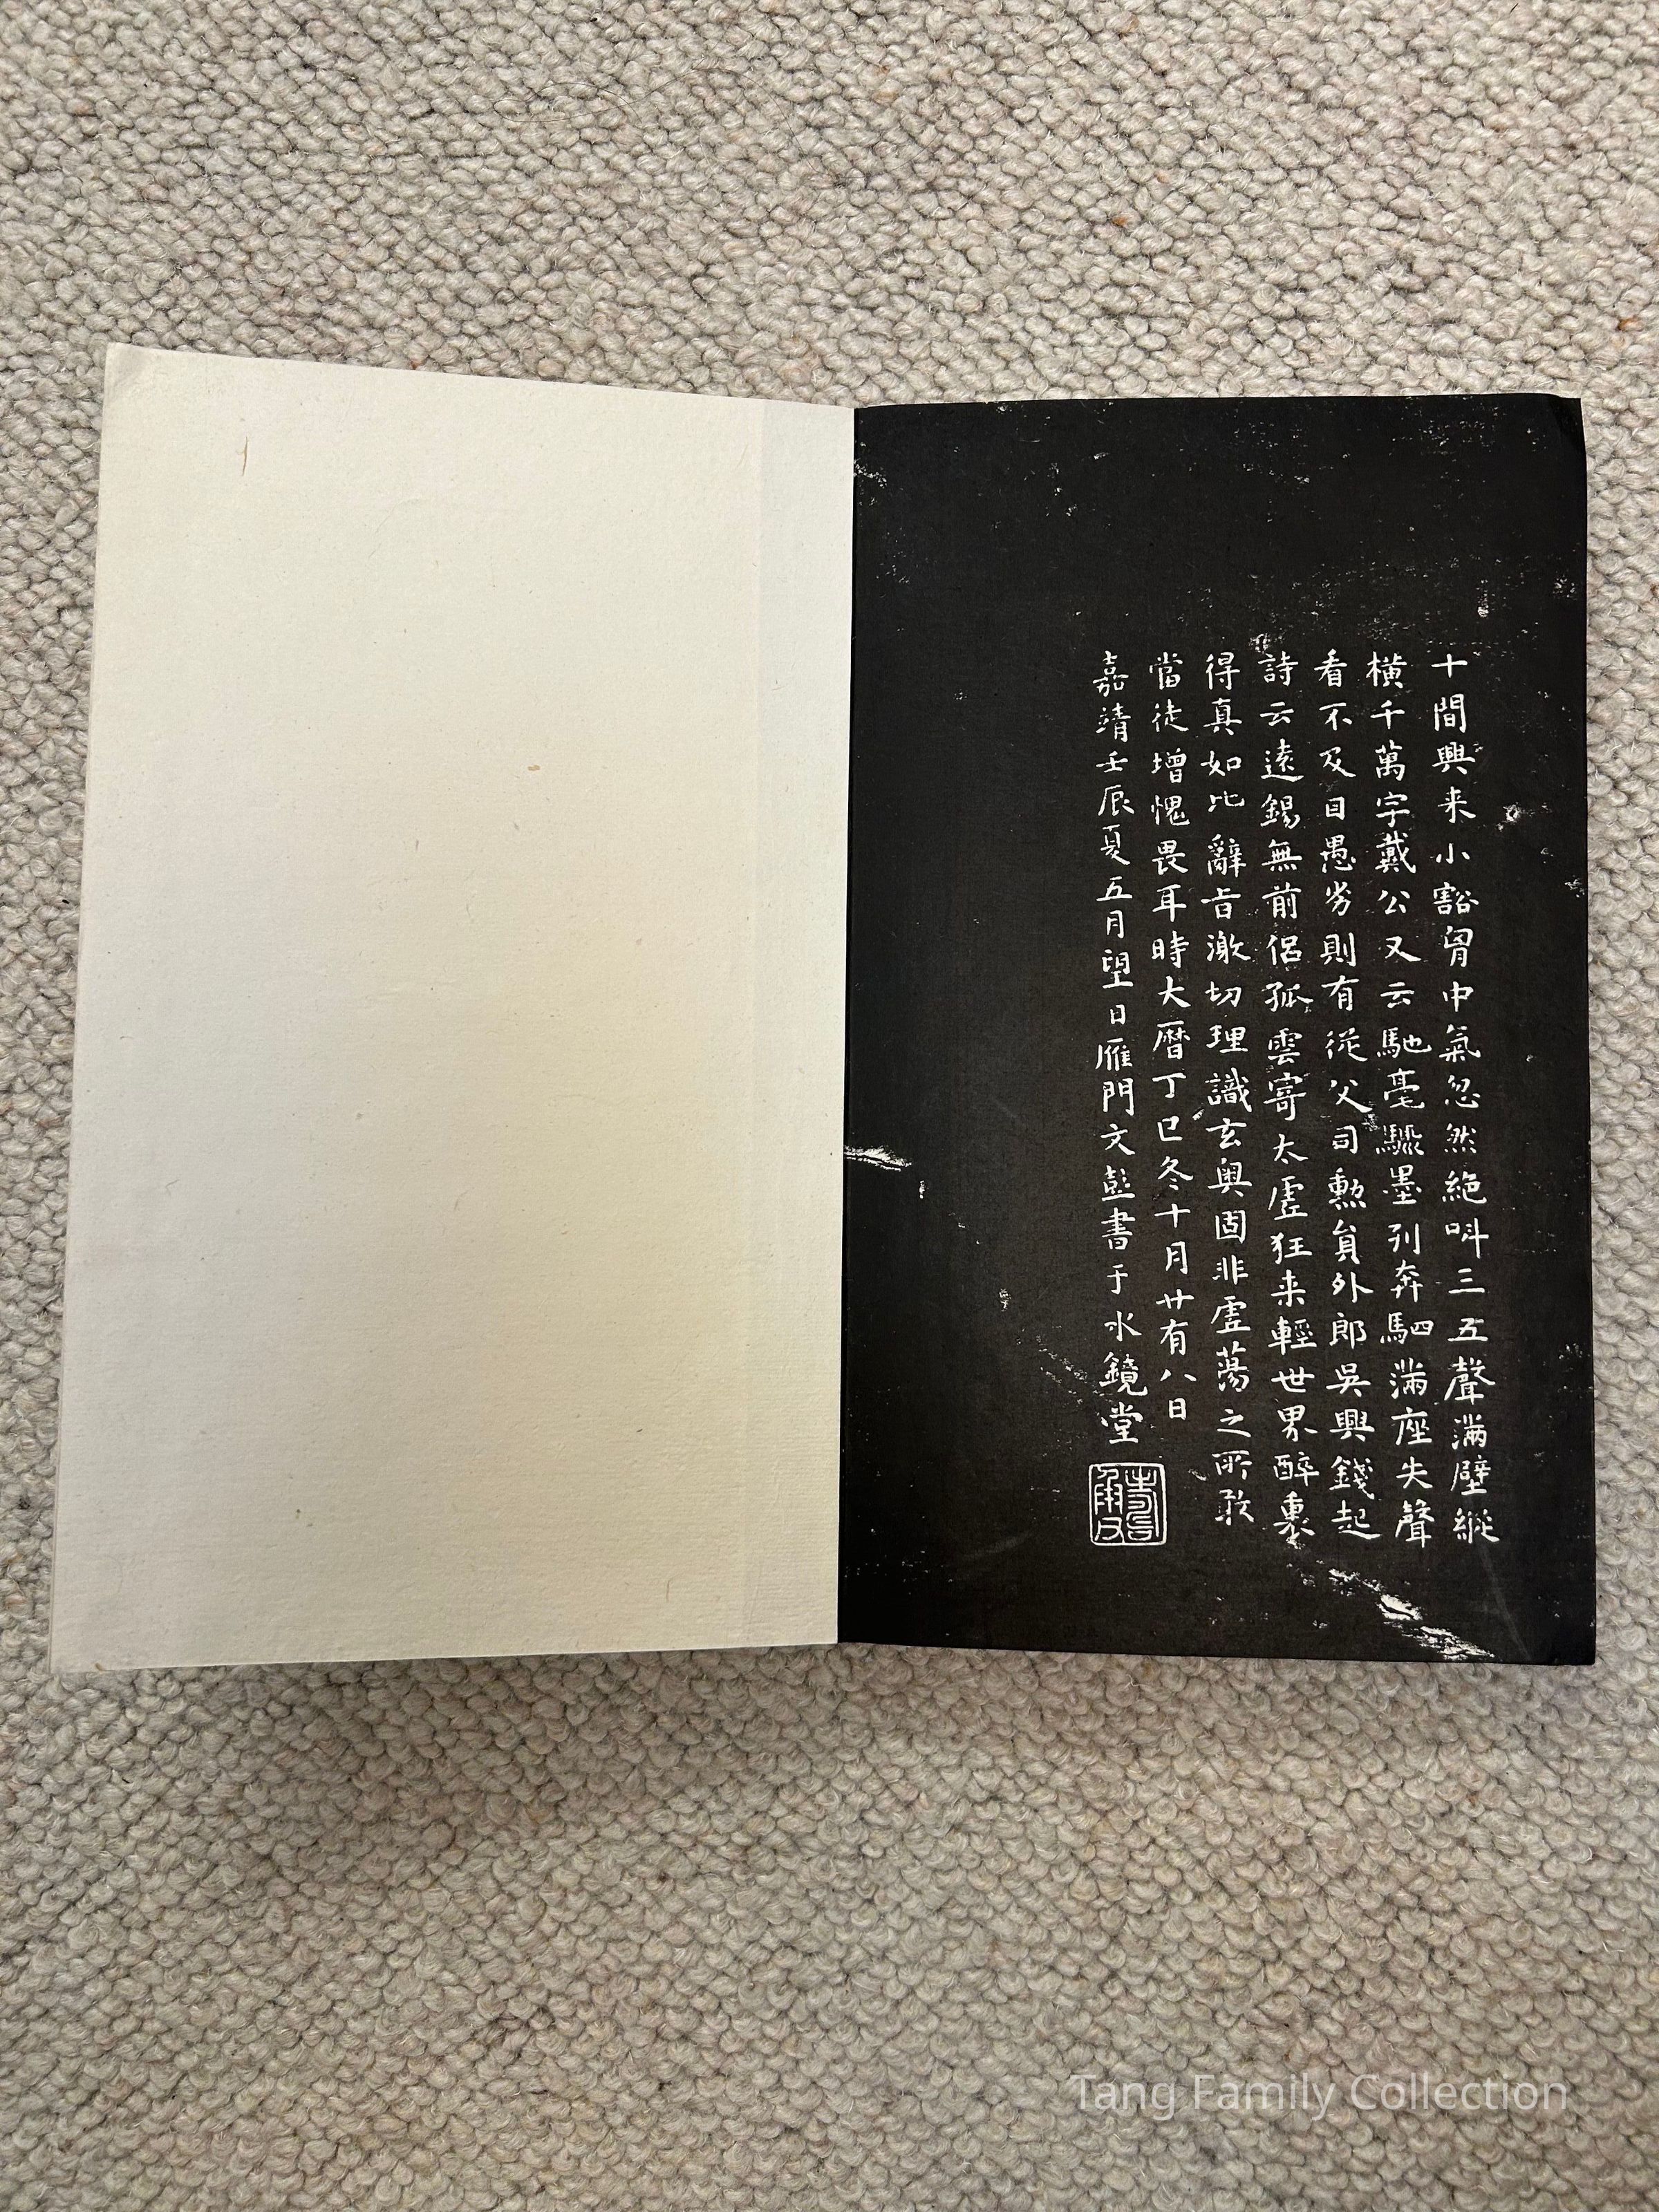 十間興来小豁胷中氣忽然絶叫三五聲滿壁縱
橫千萬字戴公又云馳毫驟墨列奔駟滿座失聲
看不及目愚劣則有從父司勲員外郎吳興錢起
詩云遠錫無前侣孤雲寄太虛狂来輕世界醉裏
得真如此辭旨激切理識玄奥固非虛蕩之所敢
當徒增愧畏耳時大曆丁巳冬十月廿有八日
嘉靖壬辰夏五月望日雁門文彭書于水鏡堂
Tang Family Collection